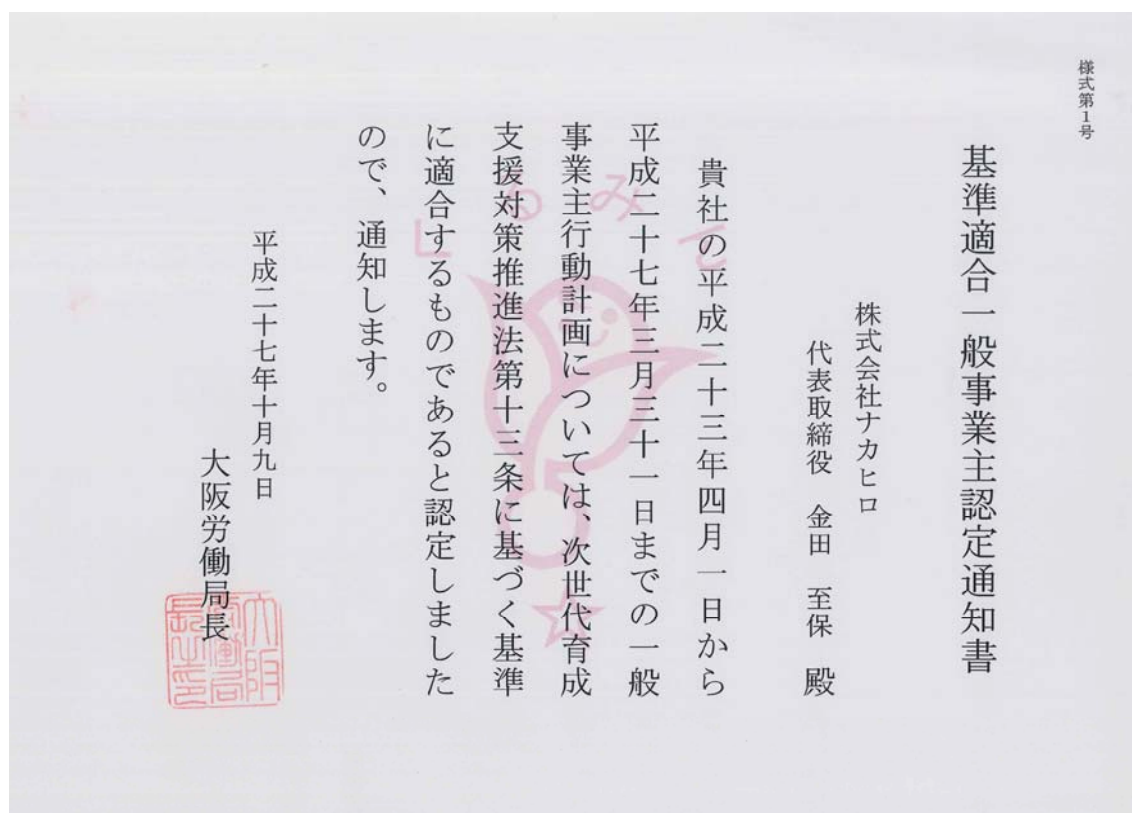 様式第1号
基準適合一般事業主認定通知書
株式会社ナカヒロ
代表取締役 金田 至保 殿
貴社の平成二十三年四月一日から
平成二十七年三月三十一日までの一般
事業主行動計画については、次世代育成
支援対策推進法第十三条に基づく基準
に適合するものであると認定しました
ので、通知します。
平成二十七年十月九日
大阪労働局長
大阪
労働局
長之印
くるみん